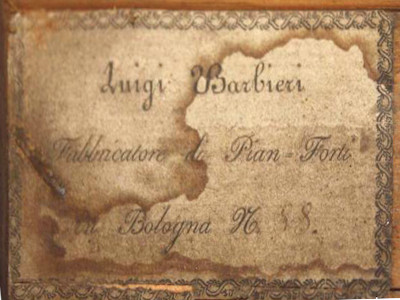 Luigi Barbieri
Fabbricatore di Pian-Forti
in Bologna N. 88.